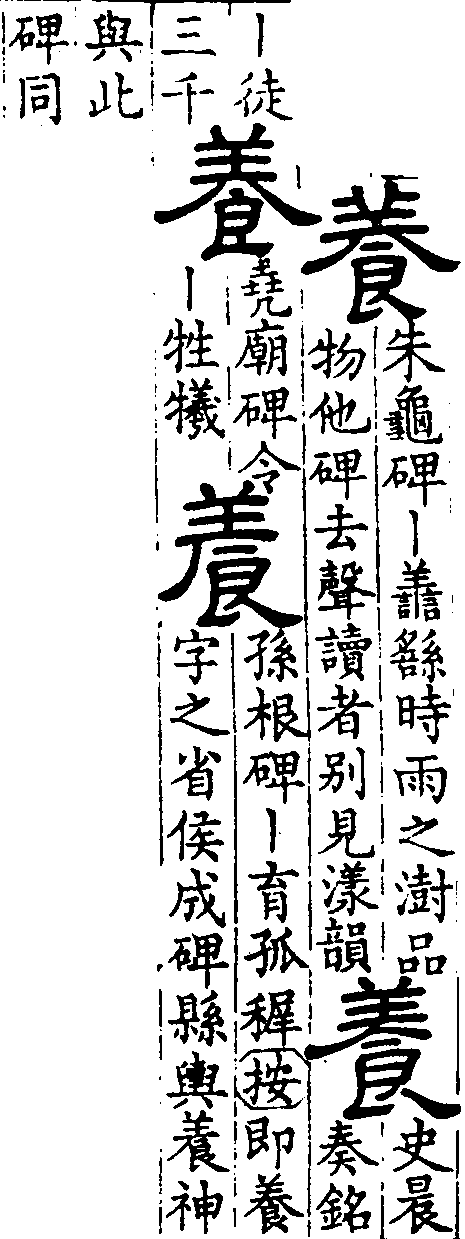 養
朱龜碑丨譱繇時雨之澍品
物他碑去聲讀者別見漾韻
養
史晨
奏銘
丨徒
三千
養
堯廟碑令
丨牲犧
養
孫根碑丨育孤稺按即養
字之省侯成碑縣輿養神
與此
碑同